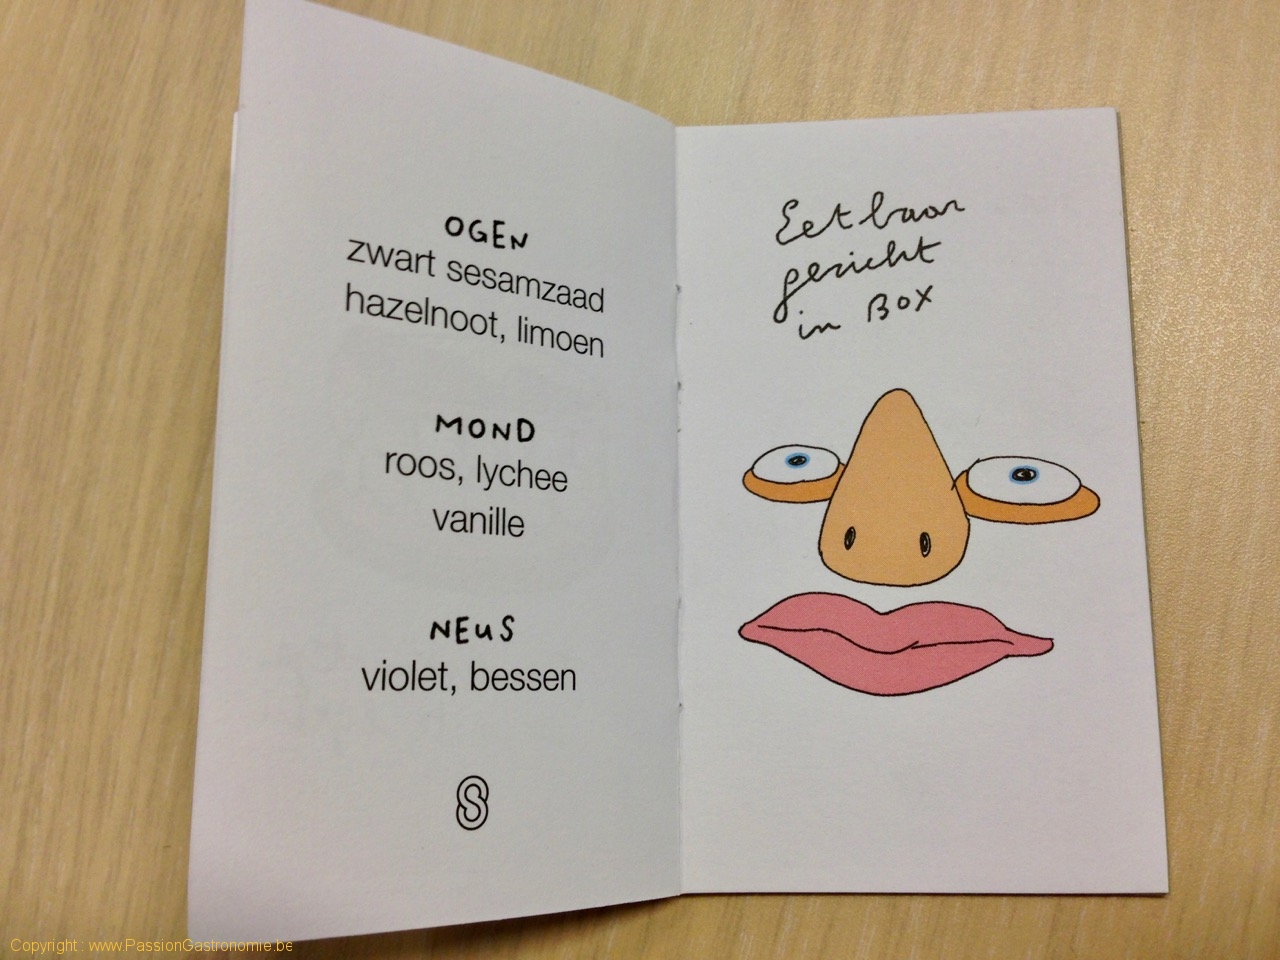 OGEN
zwart sesamzaad
hazelnoot, limoen
MOND
roos, lychee
vanille
NEUS
violet, bessen
Eetbaar
gezicht
in BOX
Copyright : www.PassionGastronomie.be